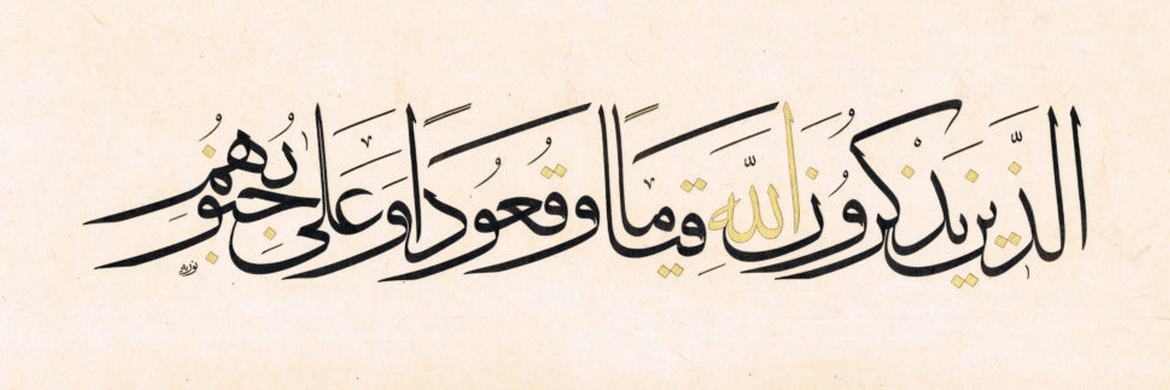 الَّذِينَ يَذْكُرُونَ اللَّهَ قِيَامًا وَقُعُودًا وَعَلَى جُنُوبِهِمْ